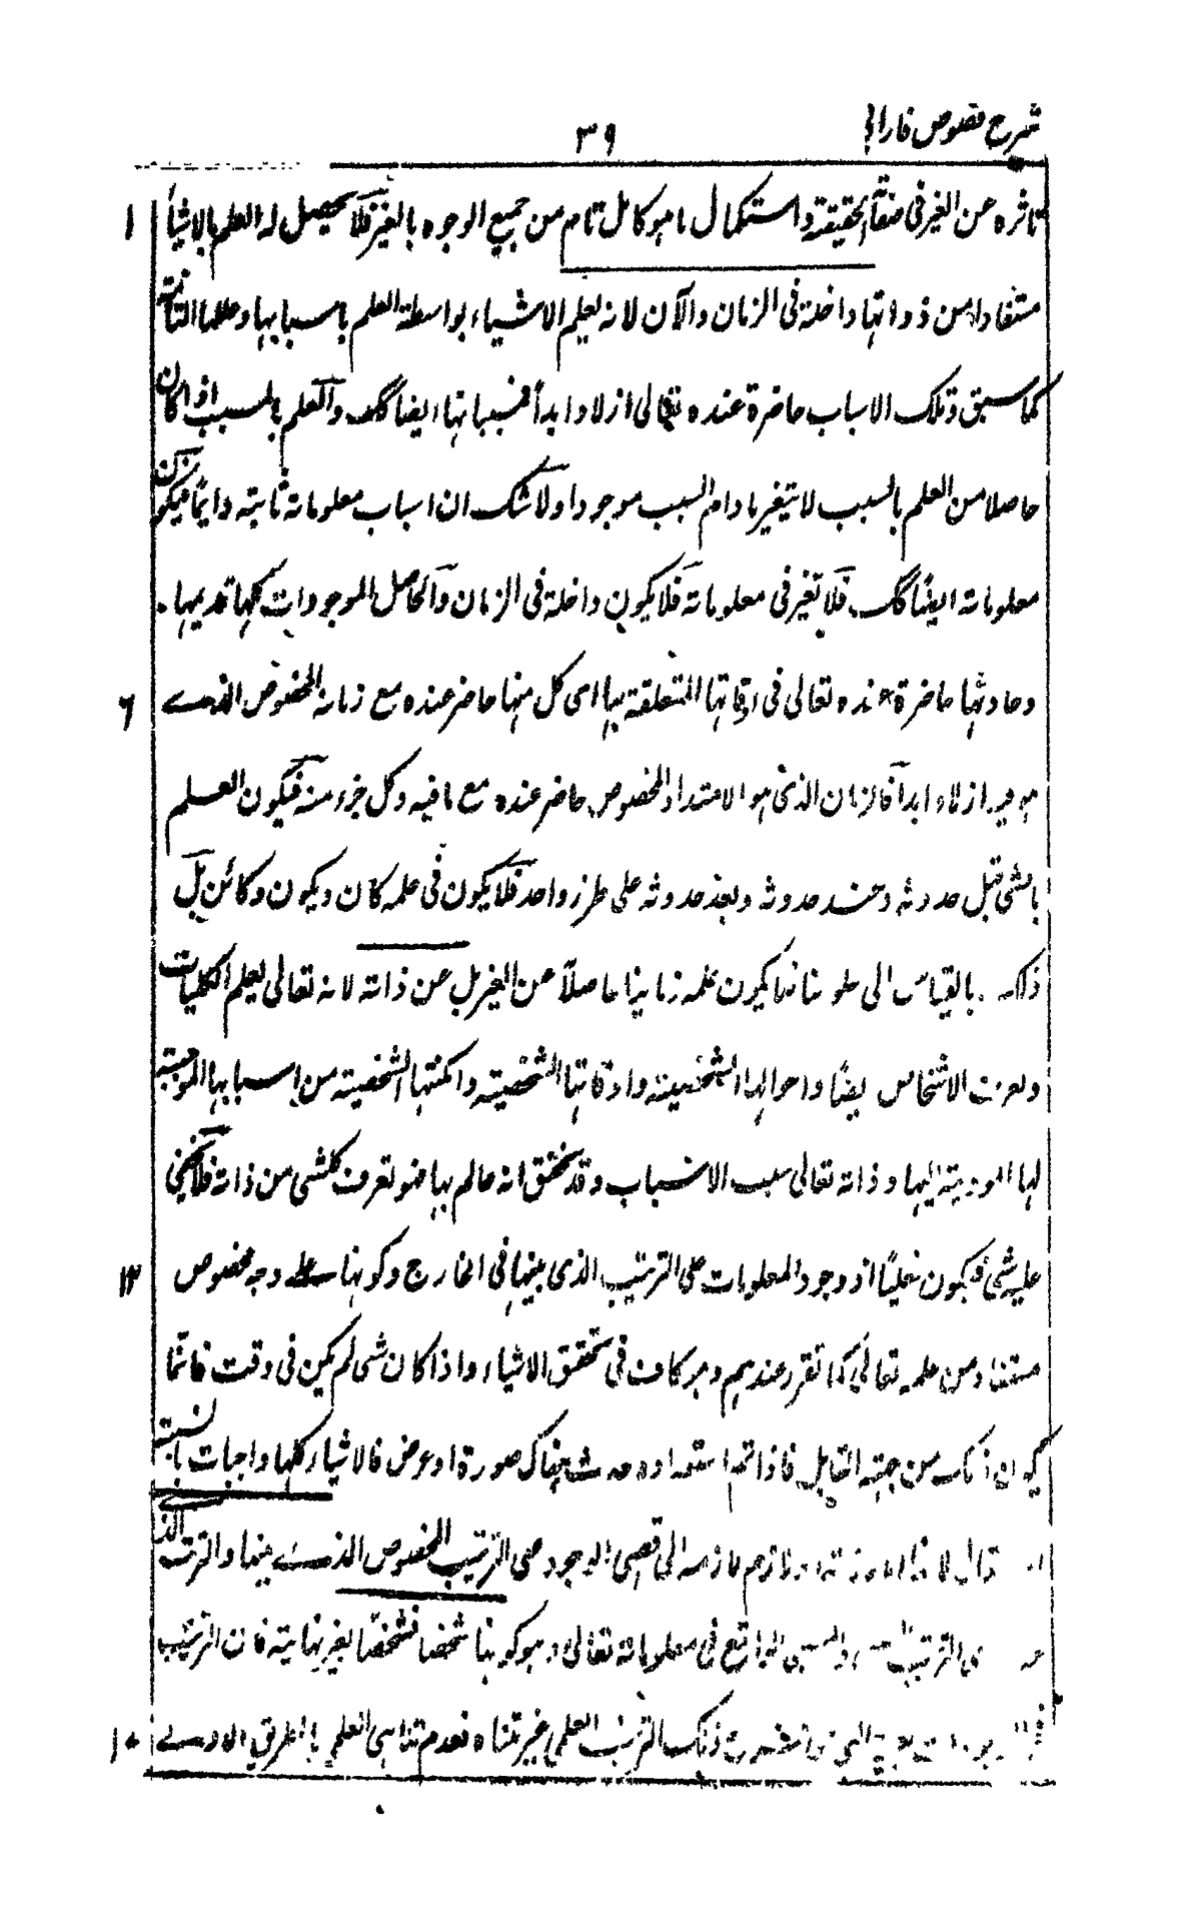 شرح فصوص فارابی
٣٩
تاثره عن الغير فی صفته الحقيقة واستكمال ما هو كامل تام من جميع الوجوه بالغير فلا يحصل له العلم بالاشيا
١
مستفادا من ذواتها داخلة فی الزمان والآن لانه يعلم الاشياء بواسطة العلم باسبابها وعللها التامة
كما سبق وتلك الاسباب حاضرة عنده تعالی ازلا وابدأ فمسبباتها ايضا كك والعلم بالمسبب اذا كان
حاصلا من العلم بالسبب لا يتغير مادام السبب موجودا ولا شك ان اسباب معلوماته ثابته دائمًا فيكون
معلوماته ايضًا كك فلا تغير فی معلوماته فلا يكون داخلة فی الزمان والحاصل الموجودات كلها قديمها
وحادثها حاضرة عنده تعالی فی اوقاتها المتعلقة بها ای كل منها حاضر عنده مع زمانه المخصوص الذے
٦
هو فيه ازلا وابدا فالزمان الذی هو الامتداد المخصوص حاضر عنده مع ما فيه وكل جزء منه فيكون العلم
بالشی قبل حدوثه وعند حدوثه وبعد حدوثه علی طرز واحد فلا يكون فی علمه كان ويكون وكائن بل
ذلك بالقياس الی علومنا فيكون علمه زمانيا حاصلا عن الغير بل عن ذاته لانه تعالی يعلم الكليات
ويعرف الاشخاص ايضًا واحوالها الشخصية واوقاتها الشخصية وامكنتها الشخصية من اسبابها الموجبة
لها المودية اليها وذاته تعالی سبب الاسباب وقد تحقق انه عالم بها فهو يعرف كلشی من ذاته فلا يخفی
عليه شئ فيكون فعليًا اذ وجود المعلومات علی الترتيب الذی بينها فی الخارج وكونها علے وجه مخصوص
١٢
مستفاد من علمه تعالی كما تقرر عندهم وهو كاف فی تحقق الاشياء واذا كان شی لم يكن فی وقت فانما
يكون ذلك من جهة القابل فاذا تم استعداده حدث هناك صورة او عرض فالاشياء كلها واجبات بالنسبة
لازم لازمه الی اقصی الوجود علی الترتيب المخصوص الذے بينها والترتيب الذے
الترتيب السببی والمسببی الواقع فی معلوماته تعالی وهو كونها شخصا فشخصًا بغير نهاية فان الترتيب
ذلك الترتيب العلمی غير متناه فعدم تناهی العلم بالطريق الاولے